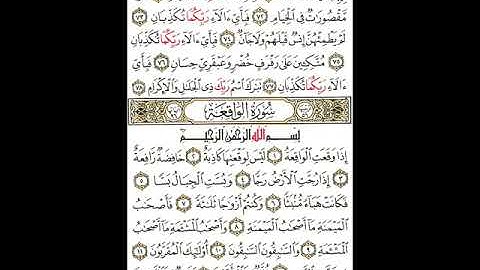 مَّقْصُورَاتٌ فِي الْخِيَامِ ٧٢ فَبِأَيِّ ءَالَآءِ رَبِّكُمَا تُكَذِّبَانِ ٧٣
لَمْ يَطْمِثْهُنَّ إِنسٌ قَبْلَهُمْ وَلَا جَآنٌّ ٧٤ فَبِأَيِّ ءَالَآءِ رَبِّكُمَا تُكَذِّبَانِ
٧٥ مُتَّكِـِٔينَ عَلَىٰ رَفْرَفٍ خُضْرٍ وَعَبْقَرِيٍّ حِسَانٍ ٧٦ فَبِأَيِّ
ءَالَآءِ رَبِّكُمَا تُكَذِّبَانِ ٧٧ تَبَٰرَكَ اسْمُ رَبِّكَ ذِي الْجَلَٰلِ وَالْإِكْرَامِ ٧٨
سُورَةُ الْوَاقِعَةِ
بِسْمِ اللَّهِ الرَّحْمَٰنِ الرَّحِيمِ
إِذَا وَقَعَتِ الْوَاقِعَةُ ١ لَيْسَ لِوَقْعَتِهَا كَاذِبَةٌ ٢ خَافِضَةٌ رَّافِعَةٌ
٣ إِذَا رُجَّتِ الْأَرْضُ رَجًّا ٤ وَبُسَّتِ الْجِبَالُ بَسًّا ٥
فَكَانَتْ هَبَآءً مُّنۢبَثًّا ٦ وَكُنتُمْ أَزْوَاجًا ثَلَٰثَةً ٧ فَأَصْحَٰبُ
الْمَيْمَنَةِ مَآ أَصْحَٰبُ الْمَيْمَنَةِ ٨ وَأَصْحَٰبُ الْمَشْـَٔمَةِ مَآ أَصْحَٰبُ
الْمَشْـَٔمَةِ ٩ وَالسَّٰبِقُونَ السَّٰبِقُونَ ١٠ أُو۟لَٰٓئِكَ الْمُقَرَّبُونَ ١١